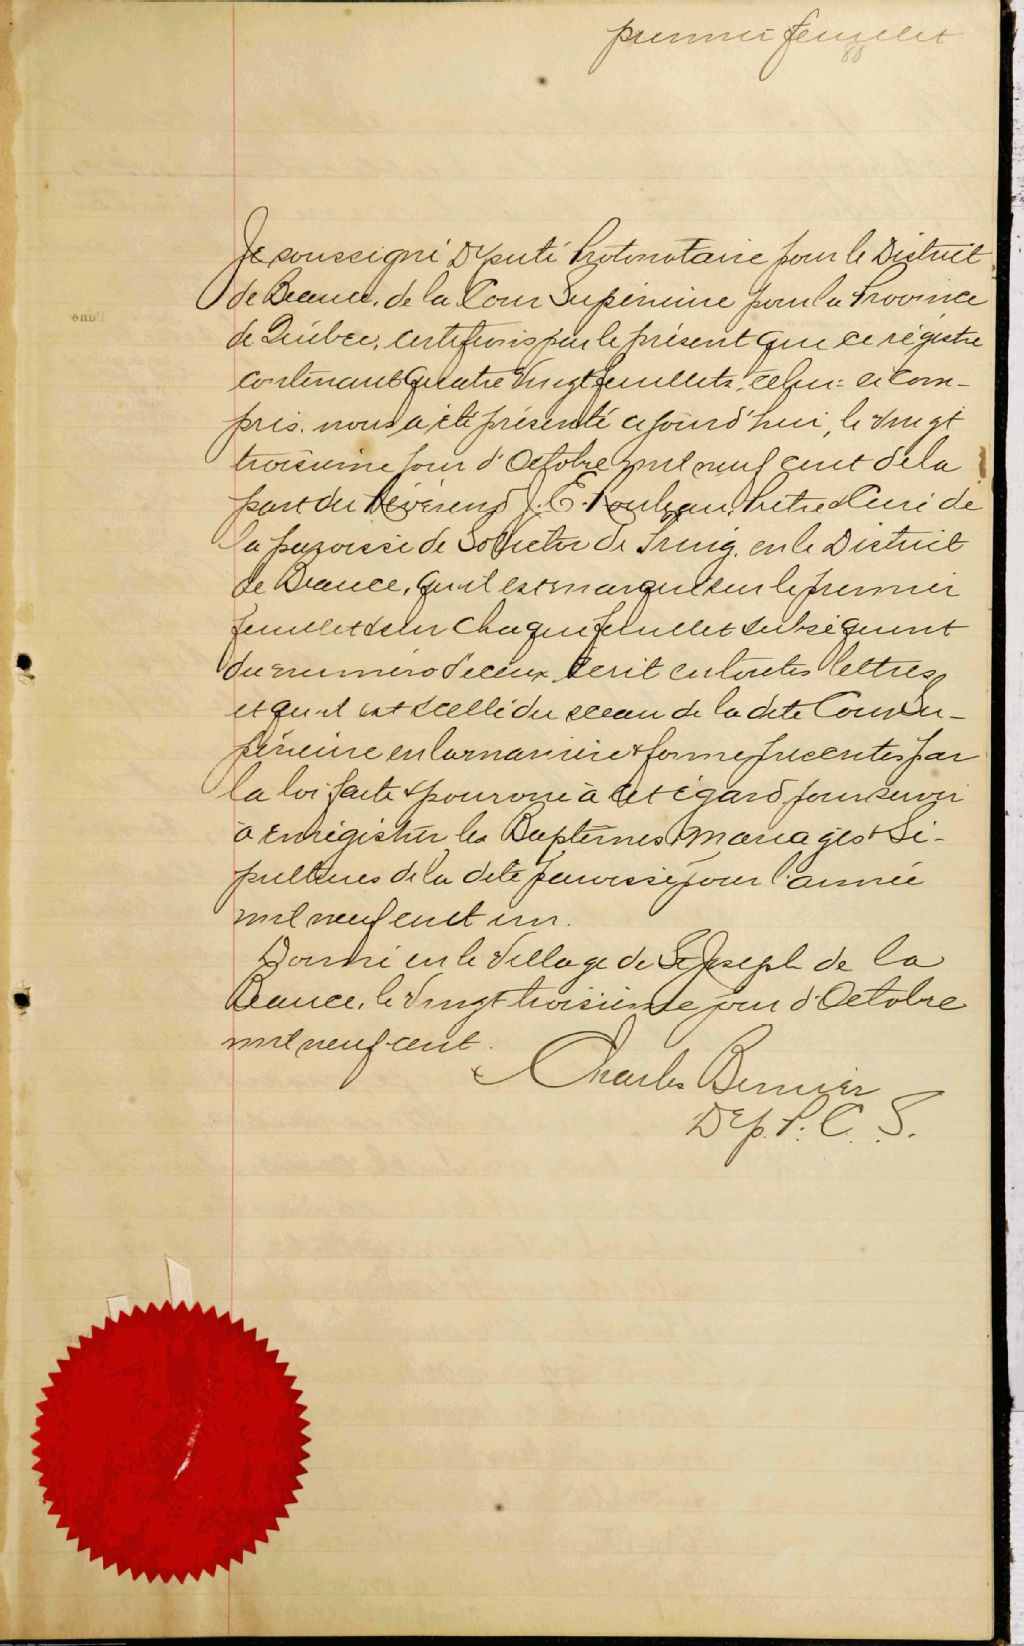 premier feuillet
88
Je soussigné Député Protonotaire pour le District
de Beauce, de la Cour Supérieure pour la Province
de Québec, certifions par le présent que ce régistre
contenant quatre vingt feuillets, celui-ci com-
pris, nous a été présenté ajourd'hui, le vingt
troisième jour d'Octobre mil neuf cent de la
part du Révérend J. E. Rouleau, Prêtre & Curé de
la paroisse de St Victor de Tring, en le District
de Beauce, qu'il est marqué sur le premier
feuillet & sur chaque feuillet subséquent
du numéro d'iceux, écrit en toutes lettres
et qu'il est scellé du sceau de la dite Cour Su-
périeure en la manière & forme prescrites par
la loi faite & pourvue à cet égard, pour servir
à enrégistrer les Baptêmes, Mariages & Sé-
pultures de la dite paroisse pour l'année
mil neuf cent un.
Donné en le Village de St Joseph de la
Beauce, le vingt troisième jour d'Octobre
mil neuf cent.
Charles Bernier
Dép. P. C. S.